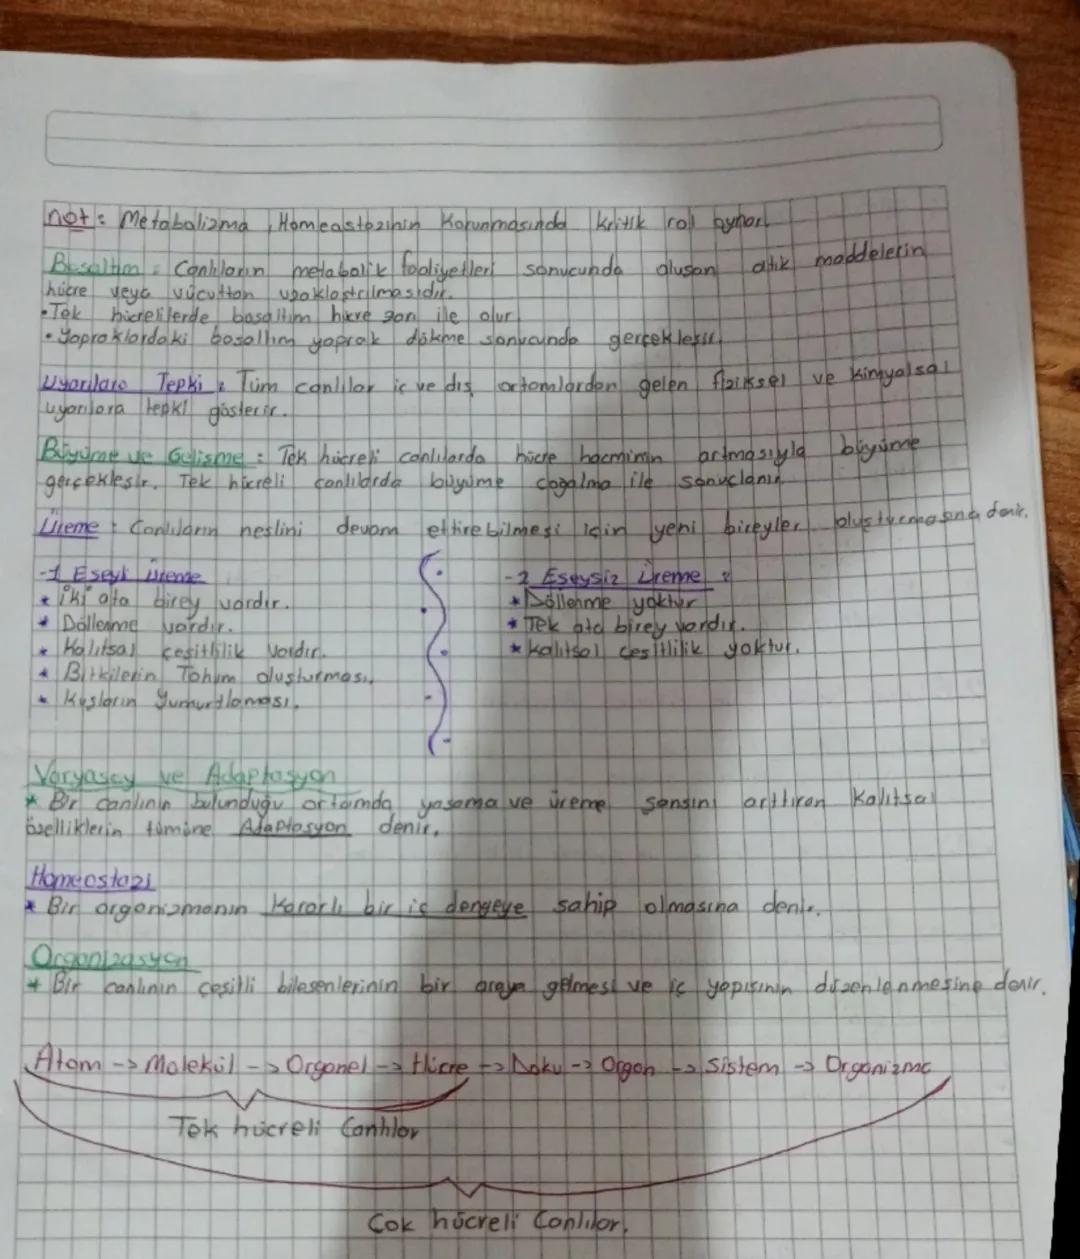 not: Metabolizma, Homeastazinin Korunmasında kritik rol oynar.
Boşaltım: Canlıların metabolik faaliyetleri sonucunda oluşan atık maddelerin
hücre veya vücuttan uzaklaştırılmasıdır.
• Tek hücrelilerde boşaltım hücre zarı ile olur.
• Yapraklardaki boşaltım yaprak dökme sonucunda gerçekleşir.
Uyarılara Tepki: Tüm canlılar iç ve dış ortamlardan gelen fiziksel ve kimyalsal
uyarılara tepki gösterir.
Büyüme ve Gelişme: Tek hücreli canlılarda hücre hacminin artmasıyla büyüme
gerçekleşir. Tek hücreli canlılarda büyüme çoğalma ile sonuçlanır.
Üreme: Canlıların neslini devam ettirebilmesi için yeni bireyler oluşturmasına denir.
-1 Eşeyli üreme
* iki ata birey vardır.
* Döllenme vardır.
* Kalıtsal çeşitlilik vardır.
* Bitkilerin Tohum oluşturması.
* Kuşların Yumurtlaması.
-2 Eşeysiz Üreme:
* Döllenme yoktur
* Tek ata birey vardır.
* kalıtsal çeşitlilik yoktur.
Varyasoy ve Adaptasyon
* Bir canlının bulunduğu ortamda yaşama ve üreme şansını arttıran Kalıtsal
özelliklerin tümüne Adaptasyon denir.
Homeostazi
* Bir organizmanın Kararlı bir iç dengeye sahip olmasına denir.
Organizasyon
* Bir canlının çeşitli bileşenlerinin bir araya gelmesi ve iç yapısının düzenlenmesine denir.
Atom -> Molekül -> Organel -> Hücre -> Doku -> Organ -> Sistem -> Organizma
Tek hücreli Canlılar
Çok hücreli Canlılar.